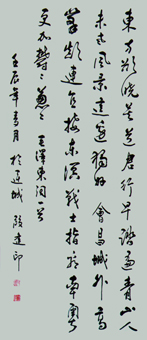 東方欲曉莫道君行早踏遍青山人
未老風景這邊獨好 會昌城外高
峯顛連直接東溟戰士指看南粵
更加鬱〻蔥〻 毛澤東詞一首
壬辰年 月於 城 段建印